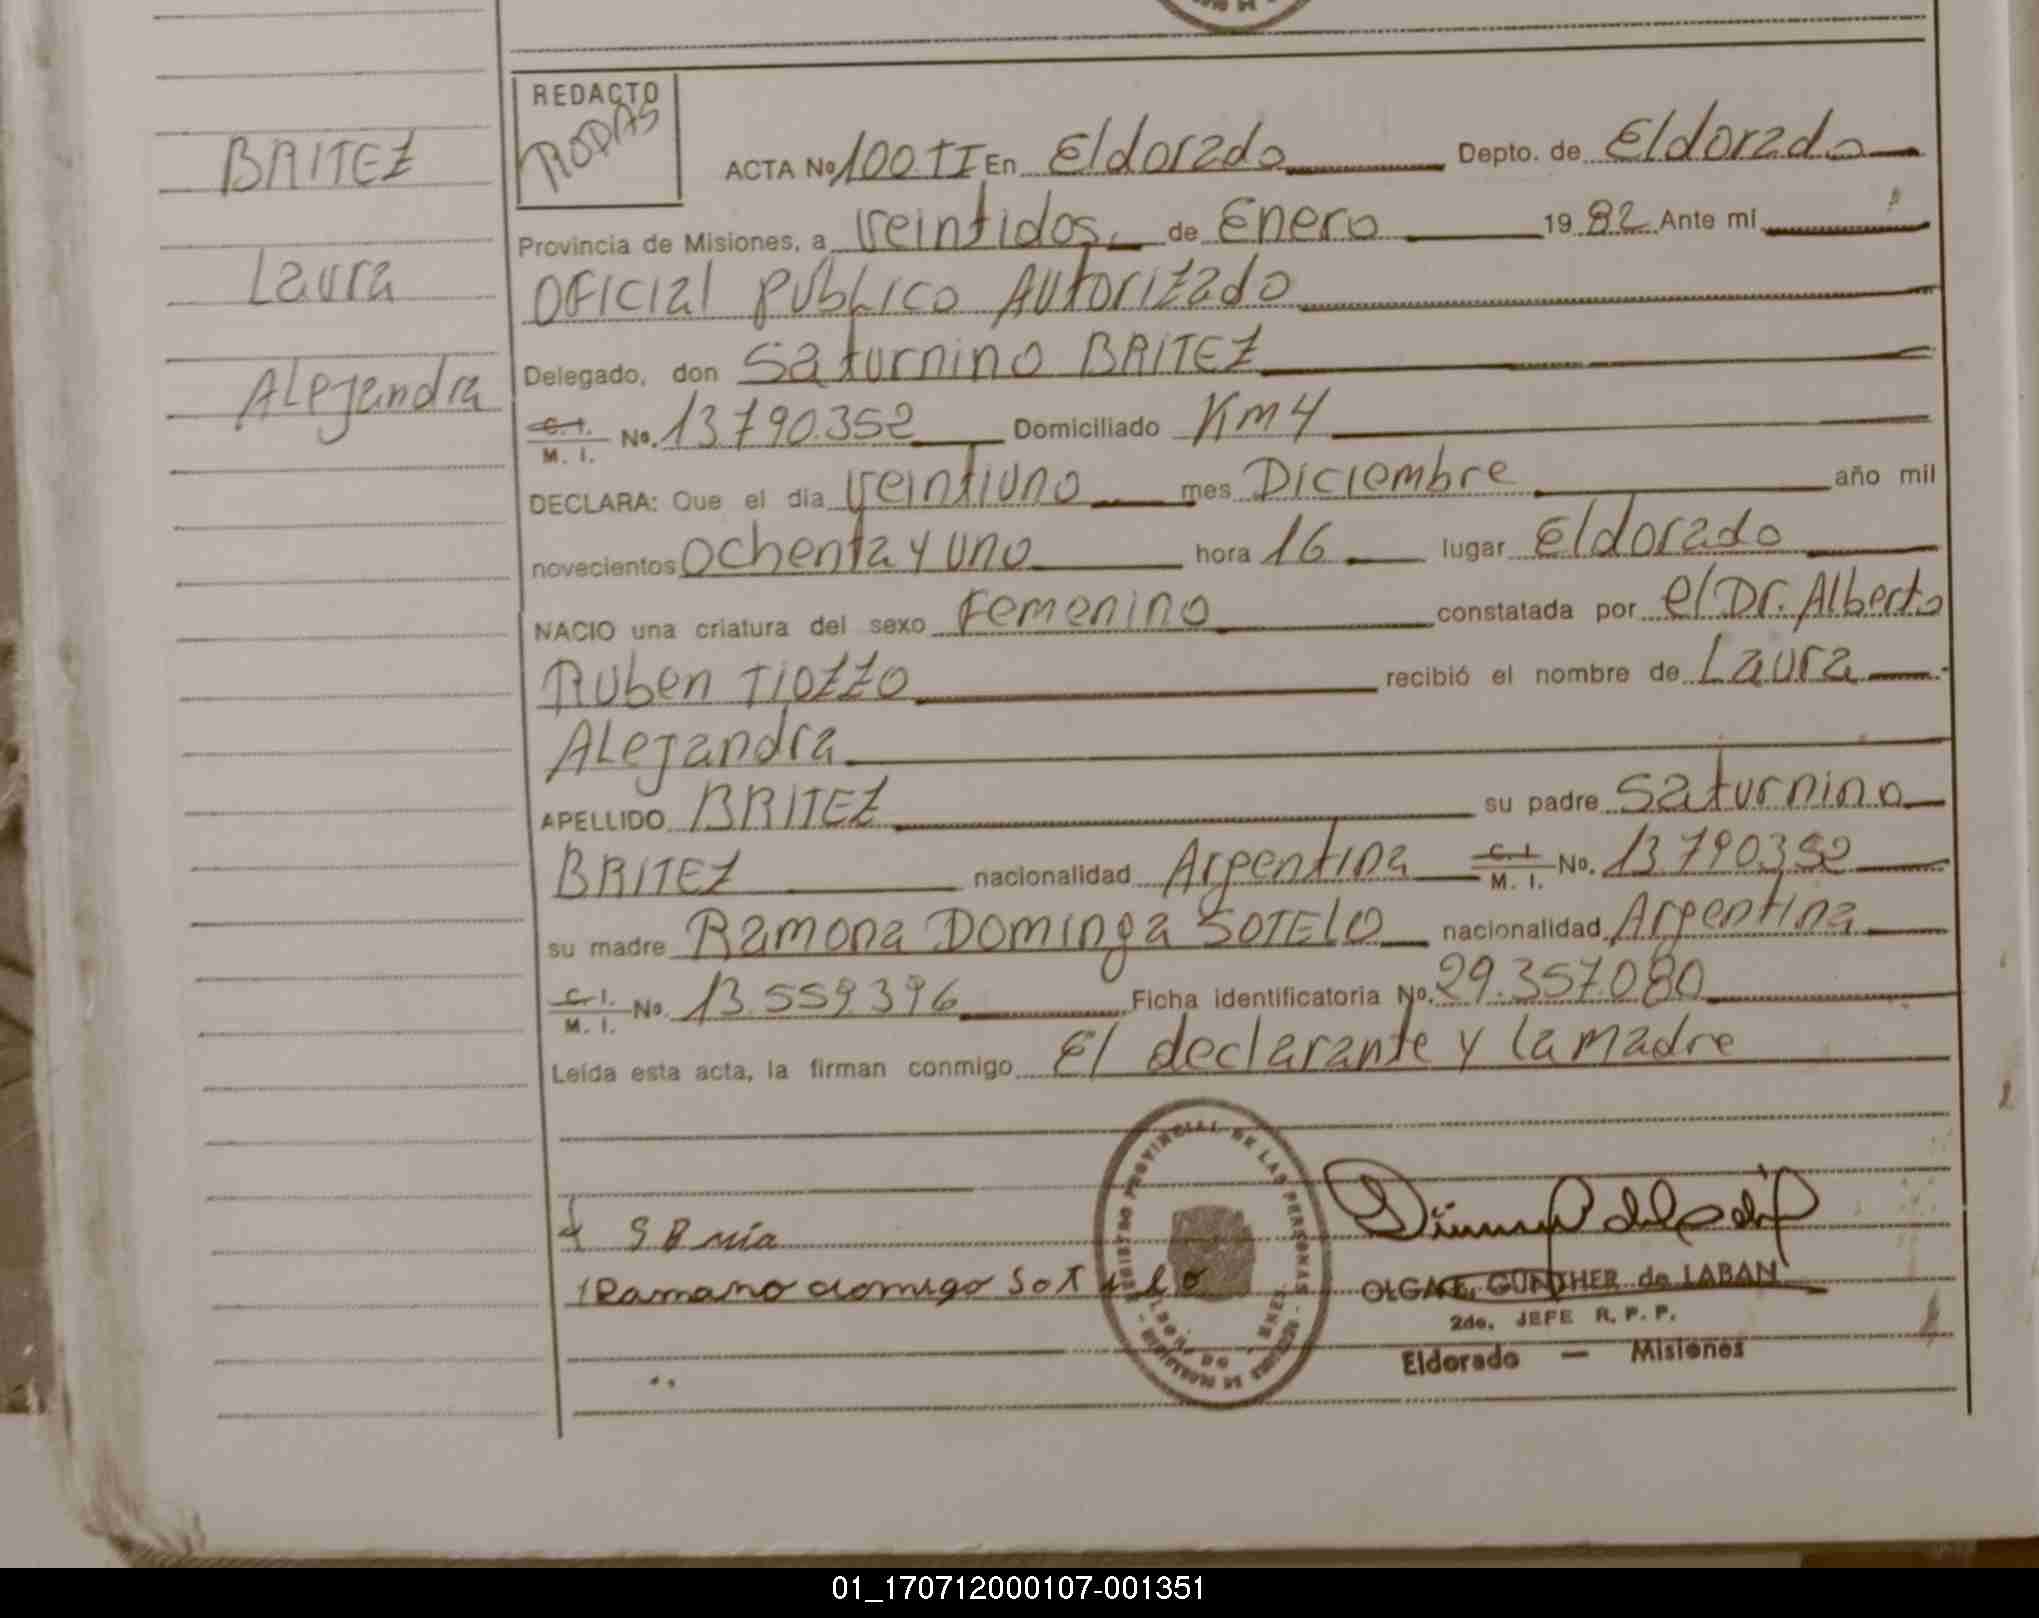 REDACTO
RODAS
BRITEZ
Laura
ALejandra
ACTA Nº 100 TI En Eldorado Depto. de Eldorado
Provincia de Misiones, a Veintidos de Enero 1982 Ante mí
OFICIal PUbLICO AUtorizado
Delegado, don Saturnino BRITEZ
C. I. M. I. No. 13790.352 Domiciliado Km 4
DECLARA: Que el día Veintiuno mes Diciembre año mil
novecientos Ochenta y uno hora 16 lugar Eldorado
NACIO una criatura del sexo Femenino constatada por el Dr. Alberto
Ruben TIOZZO recibió el nombre de Laura
ALejandra
APELLIDO BRITEZ su padre Saturnino
BRITEZ nacionalidad Argentina C. I. M. I. No. 13.790352
su madre Ramona Dominga SOTELO nacionalidad Argentina
C. I. M. I. No. 13.559.396 Ficha identificatoria No. 29.357.080
Leída esta acta, la firman conmigo El declarante y la madre
REGISTRO PROVINCIAL DE LAS PERSONAS
OLGA E. GUNTHER de LABAN
2do. JEFE R. P. P.
Eldorado — Misiones
01_170712000107-001351